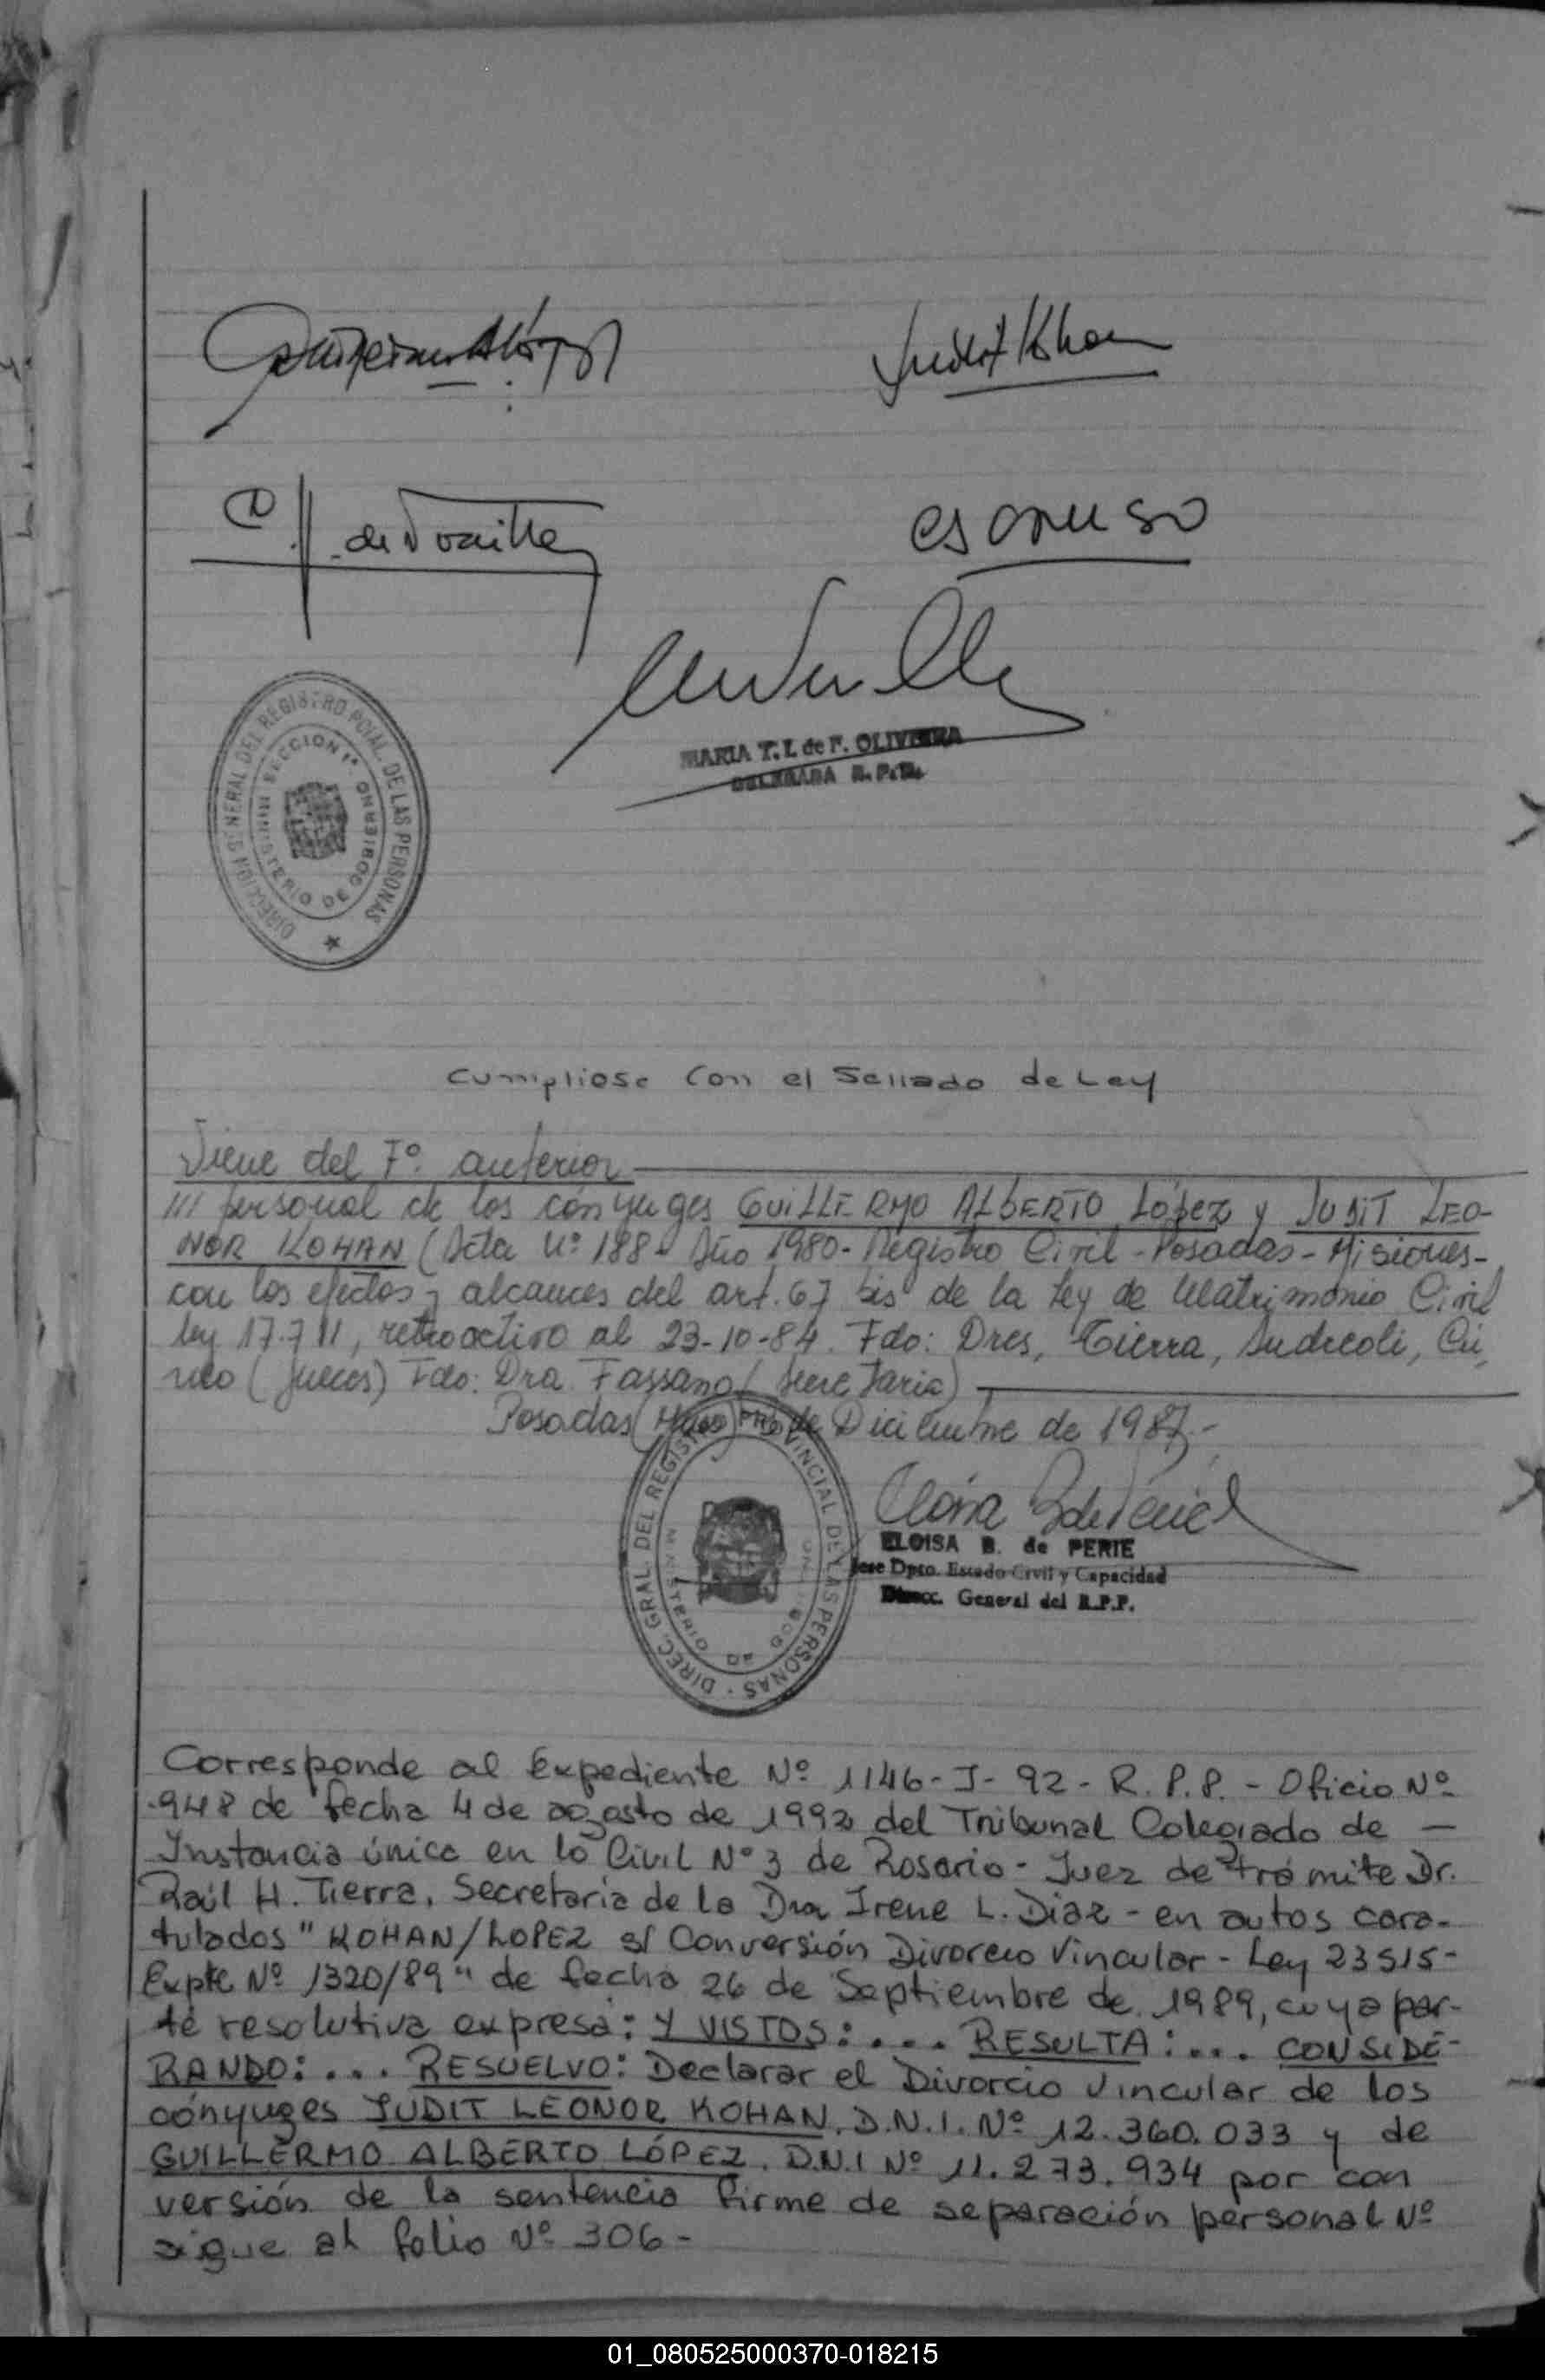 Judit Kohan
MARIA T. I. de F. OLIVEIRA
DELEGADA R. P. P.
DIRECCION GENERAL DEL REGISTRO PCIAL. DE LAS PERSONAS
SECCION 1ª
MINISTERIO DE GOBIERNO
Cumpliose con el Sellado de Ley
Viene del Fº. anterior
/// personal de los cónyuges GUILLERMO ALBERTO López y JUDIT LEO-
NOR KOHAN (Acta Nº 188 - Año 1980 - Registro Civil - Posadas - Misiones -
con los efectos y alcances del art. 67 bis de la Ley de Matrimonio Civil
ley 17.711, retroactivo al 23-10-84. Fdo: Dres, Tierra, Andreoli,
(Jueces) Fdo: Dra. Fassano (Secretaria)
Posadas de Diciembre de 1987.-
DIREC. GRAL. DEL REGISTRO PROVINCIAL DE LAS PERSONAS -
MINISTERIO DE GOBIERNO
ELOISA B. de PERIE
Jefe Dpto. Estado Civil y Capacidad
Direcc. General del R.P.P.
Corresponde al Expediente Nº 1146 - J - 92 - R. P. P. - Oficio Nº
948 de fecha 4 de agosto de 1992 del Tribunal Colegiado de —
Instancia única en lo Civil Nº 3 de Rosario - Juez de trámite Dr.
Raúl H. Tierra, Secretaría de la Dra Irene L. Diaz - en autos cara-
tulados " KOHAN/LOPEZ s/ Conversión Divorcio Vincular - Ley 23515 -
Expte Nº 1320/89 " de fecha 26 de Septiembre de 1989, cuya par-
te resolutiva expresa: Y VISTOS: .... RESULTA: ... CONSIDE-
RANDO: ... RESUELVO: Declarar el Divorcio Vincular de los
cónyuges JUDIT LEONOR KOHAN. D.N.I. Nº 12.360.033 y de
GUILLERMO ALBERTO LÓPEZ. D.N.I Nº 11.273.934 por con
versión de la sentencia firme de separación personal Nº
sigue al folio Nº 306 -
01_080525000370-018215